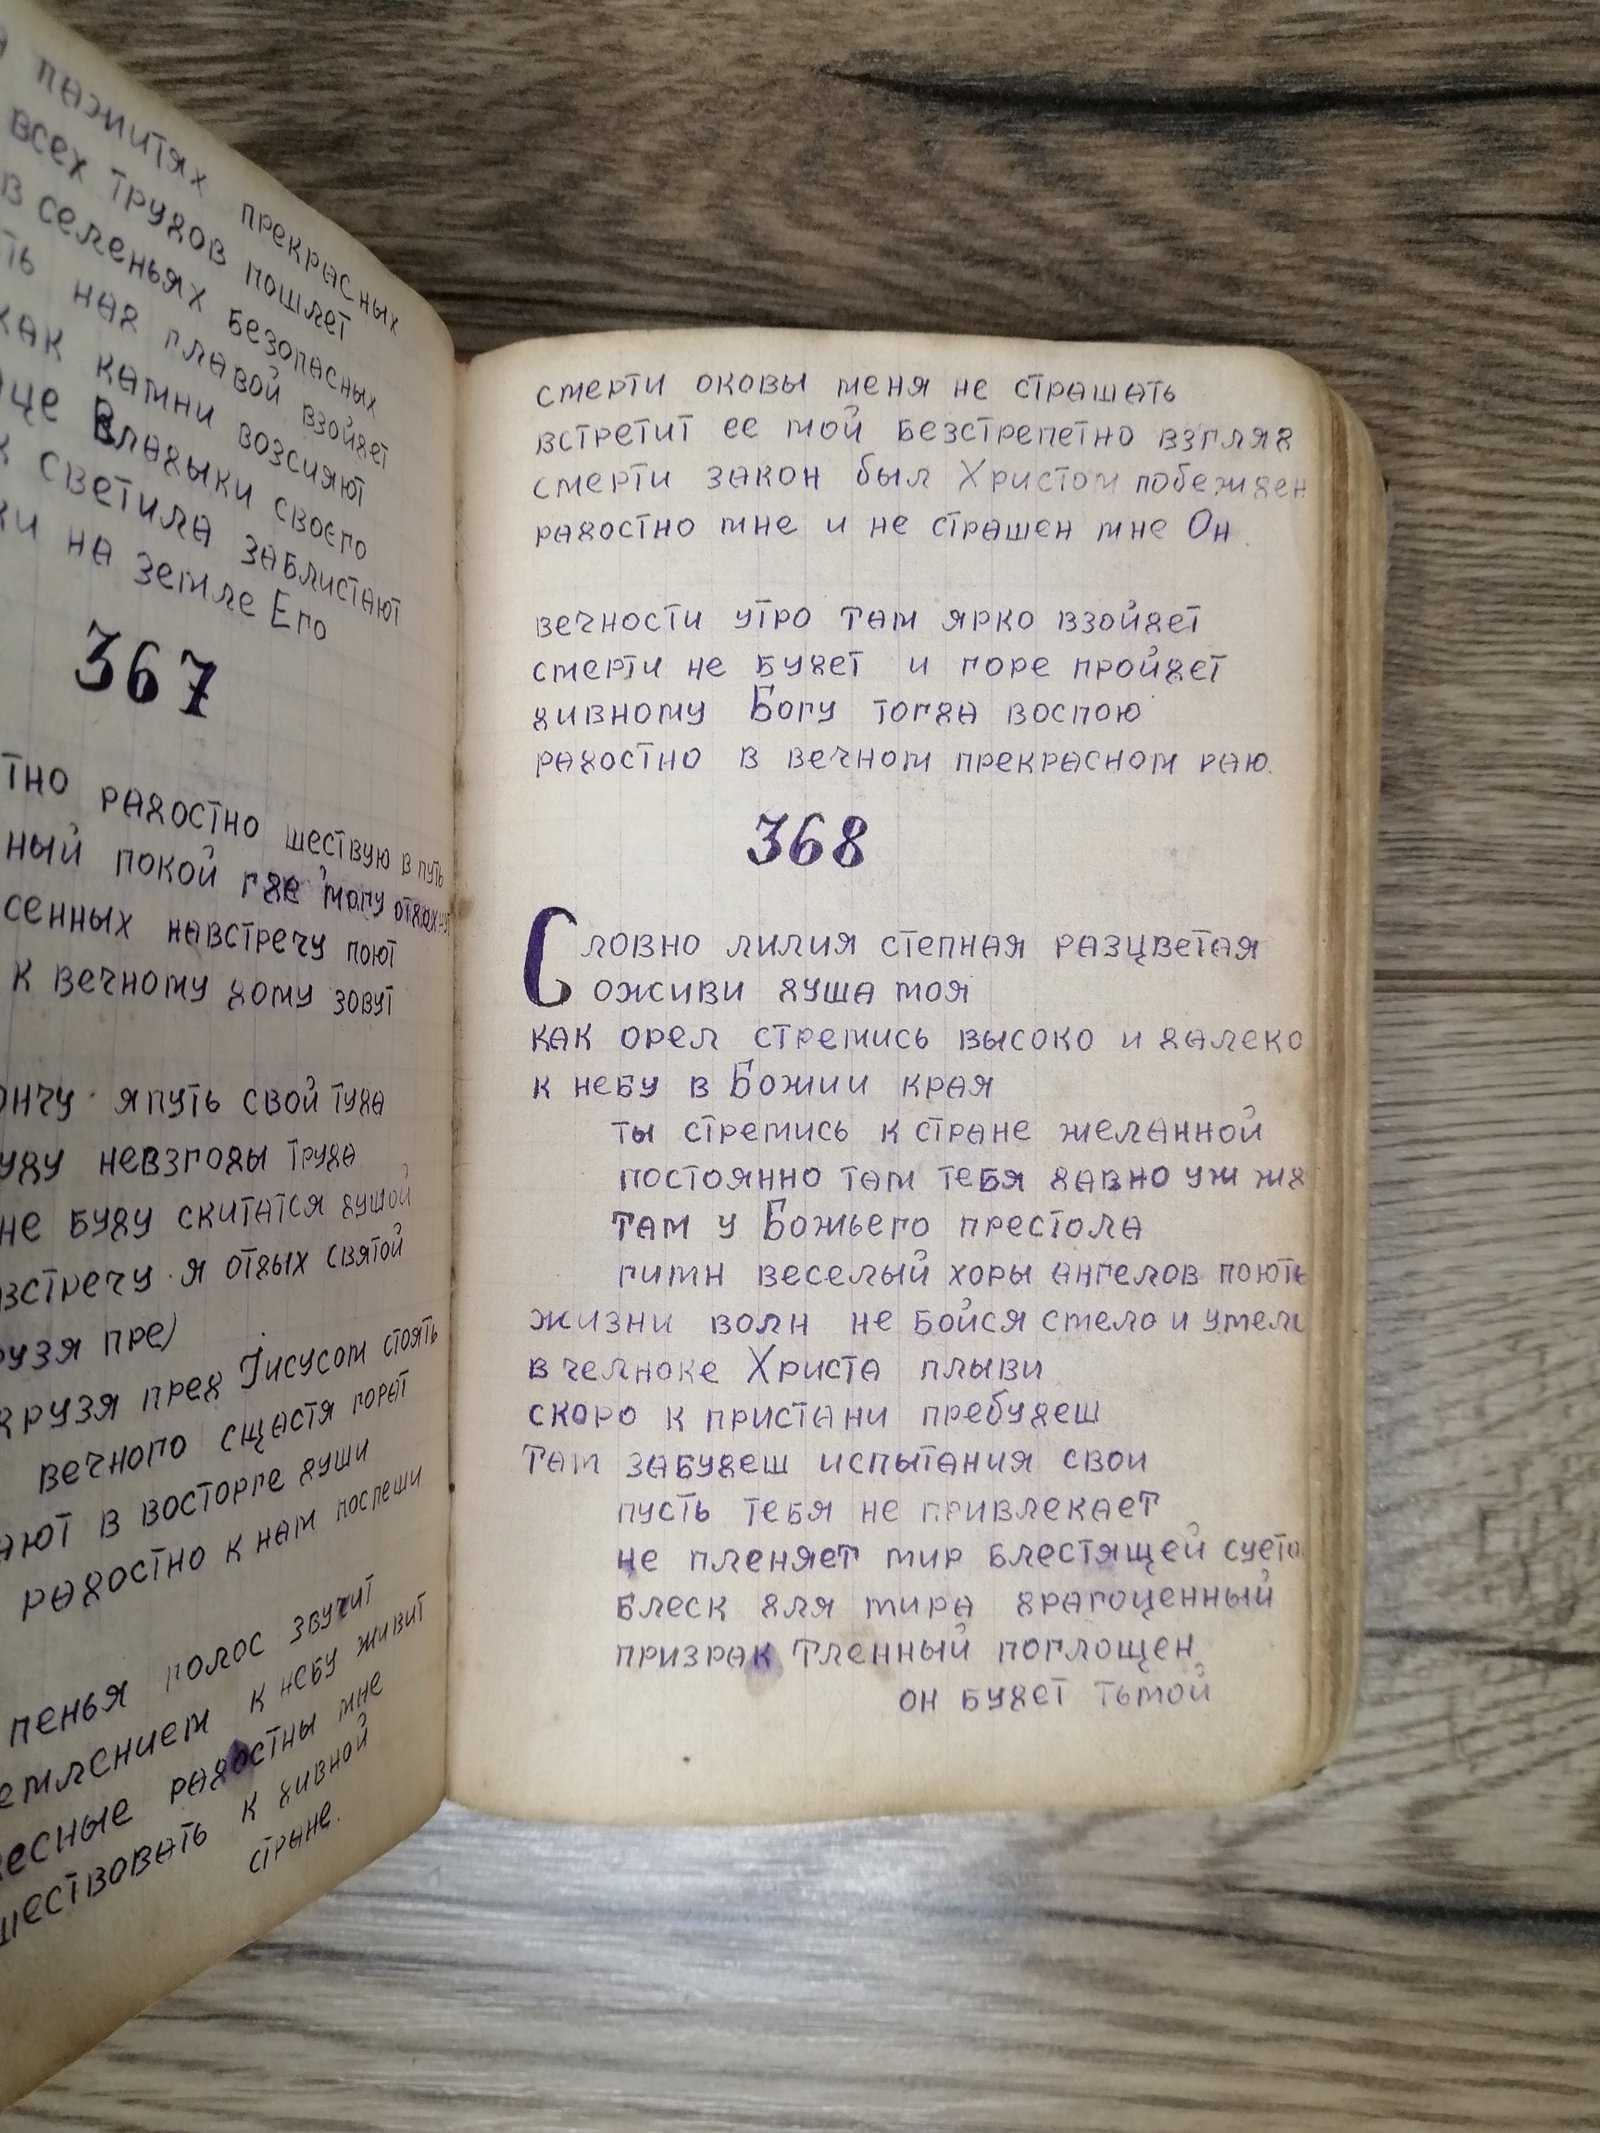 пажитях прекрасных
всех трудов пошлет
в селеньях безопасных
над главой взойдет
как камни возсияют
Владыки своего
светила заблистают
на земле Его
367
радостно шествую в путь
покой где могу
навстречу поют
к вечному дому зовут
я путь свой туда
невзгоды труда
не буду скитатся душой
я отдых святой
пре)
друзя пред Іисусом стоять
вечного сщастя горят
в восторге души
радостно к нам поспеши
пенья голос звучит
к небу живит
радостны мне
к дивной
стране.
смерти оковы меня не страшать
встретит ее мой безстрепетно взгляд
смерти закон был Христом побежден
радостно мне и не страшен мне Он.
вечности утро там ярко взойдет
смерти не будет и горе пройдет
дивному Богу тогда воспою
радостно в вечном прекрасном раю.
368
Словно лилия степная разцветая
оживи душа моя
как орел стремись высоко и далеко
к небу в Божии края
ты стремись к стране желанной
постоянно там тебя давно уж жд
там у Божьего престола
гимн веселый хоры ангелов поють
жизни волн не бойся смело и умело
в челноке Христа плыви
скоро к пристани пребудеш
там забудеш испытания свои
пусть тебя не привлекает
не пленяет мир блестящей суето
блеск для мира драгоценный
призрак тленный поглощен
он будет тьмой